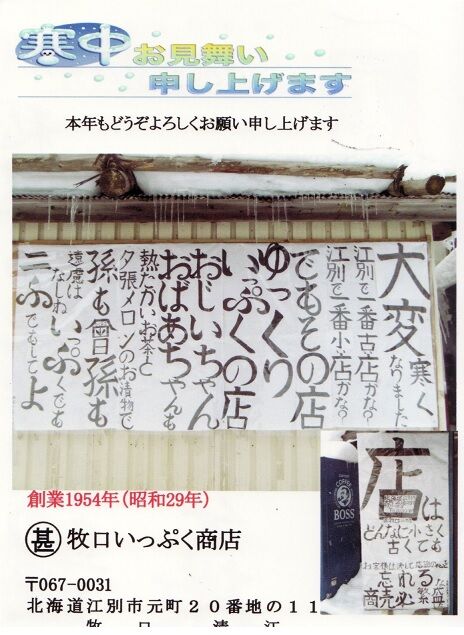 寒中お見舞い
申し上げます
本年もどうぞよろしくお願い申し上げます
大変寒く
なりました
江別で一番古店かな?
江別で一番小店かな?
でもその店
ゆっくり
いっぷくの店
おじいちゃん
おばあちゃんも
熱たかいお茶と
夕張メロンのお漬物で
孫も曾孫も
遠慮は
なしね いっぷくでも
二ぷでもしてよ
COFFEE
BOSS
店は
どんなに小さく
古くても
忘れる
商売必繁
創業1954年(昭和29年)
甚 牧口いっぷく商店
〒067-0031
北海道江別市元町20番地の11
牧口 清江